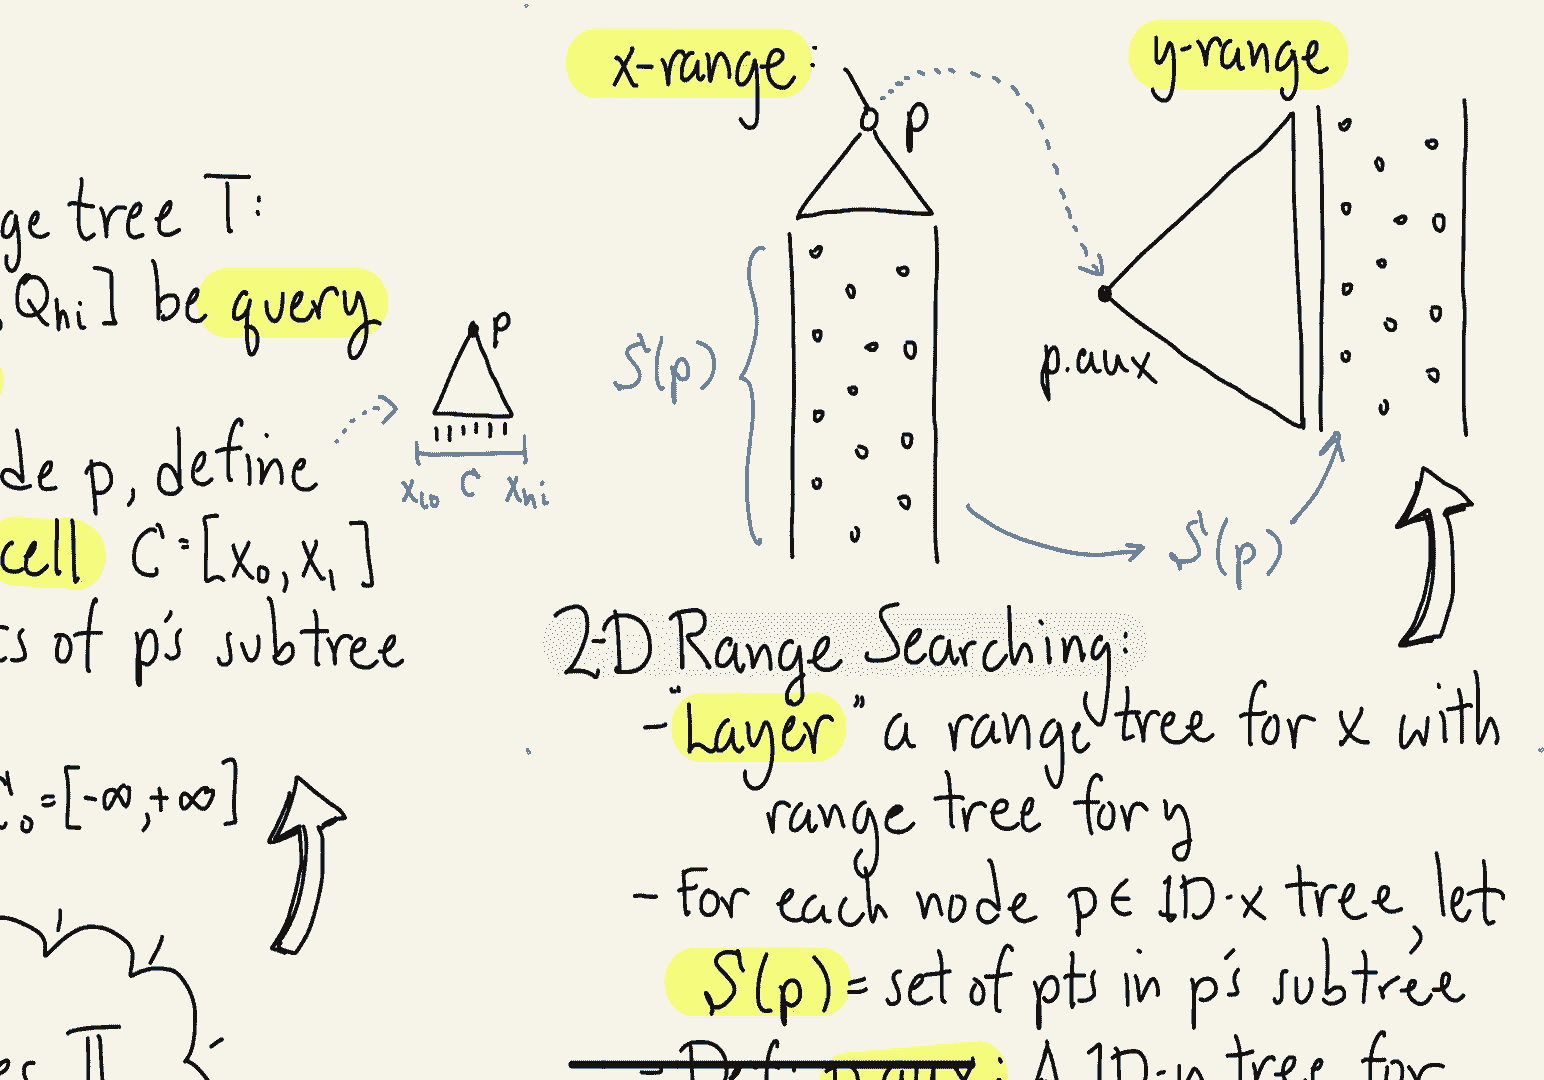 ge tree T:
, Qhi] be query
de p, define
cell C = [x0, x1]
ts of p's subtree
C0 = [-∞, +∞]
p
xlo C xhi
x-range:
p
S(p)
y-range
p.aux
S(p)
2-D Range Searching:
- "Layer" a range tree for x with
range tree for y
- For each node p ∈ 1D-x tree, let
S(p) = set of pts in p's subtree
- Def: p.aux: A 1D-y tree for